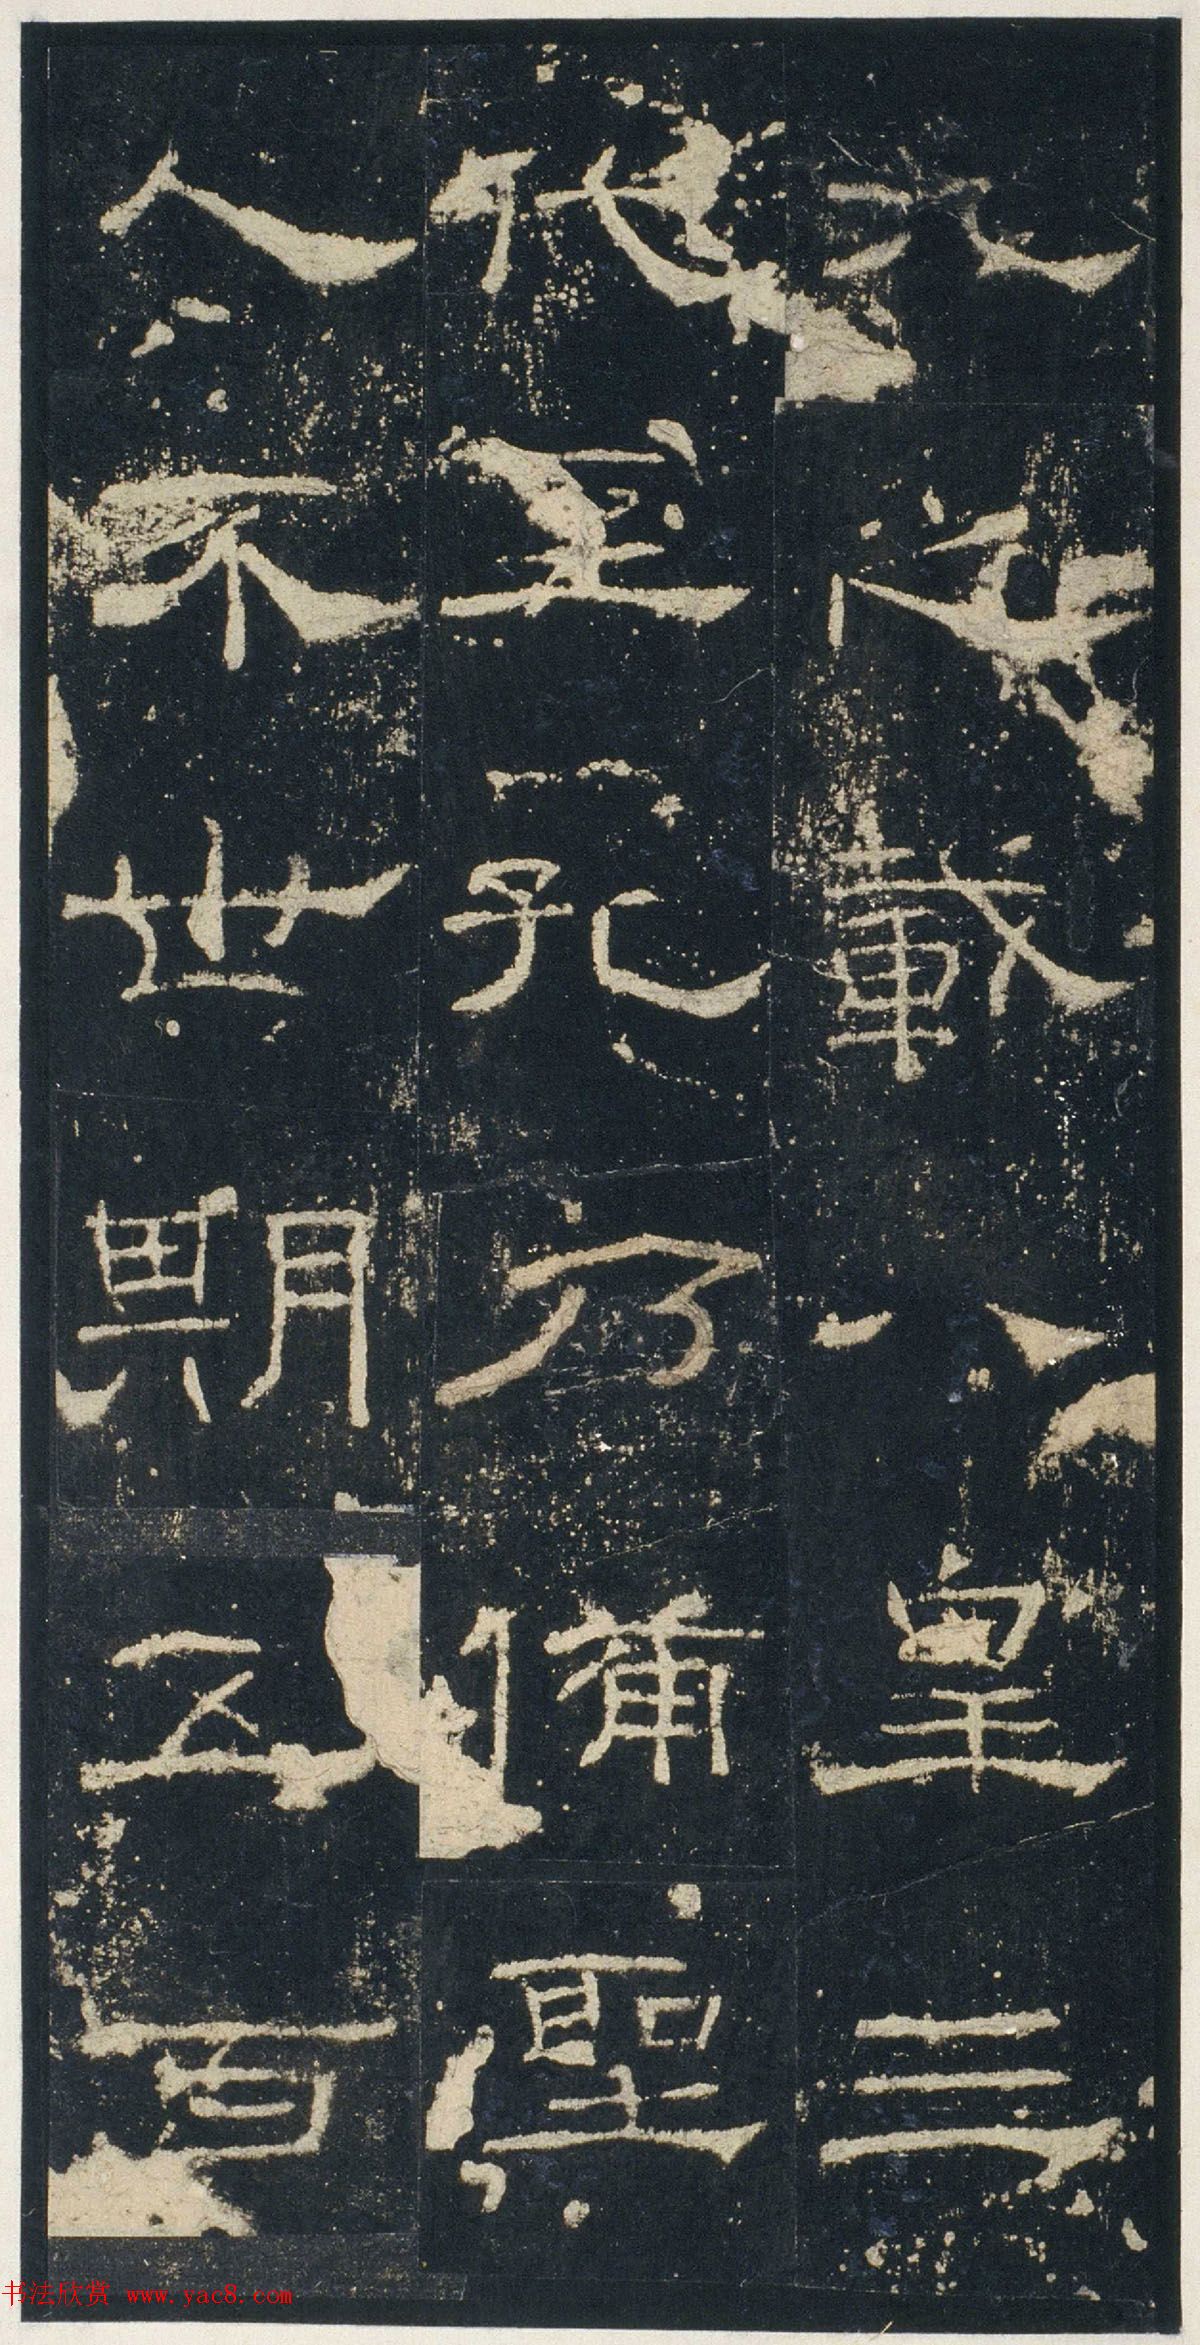 九之載八皇三
代至孔乃備聖
人不世期五百
书法欣赏 www.yac8.com